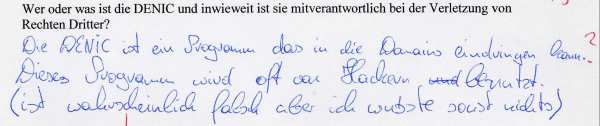 Wer oder was ist die DENIC und inwieweit ist sie mitverantwortlich bei der Verletzung von
Rechten Dritter?
Die DENIC ist ein Programm das in die Domains eindringen kann. ?
Dieses Programm wird oft von Hackern und benutzt.
(ist wahrscheinlich falsch aber ich wusste sonst nichts)